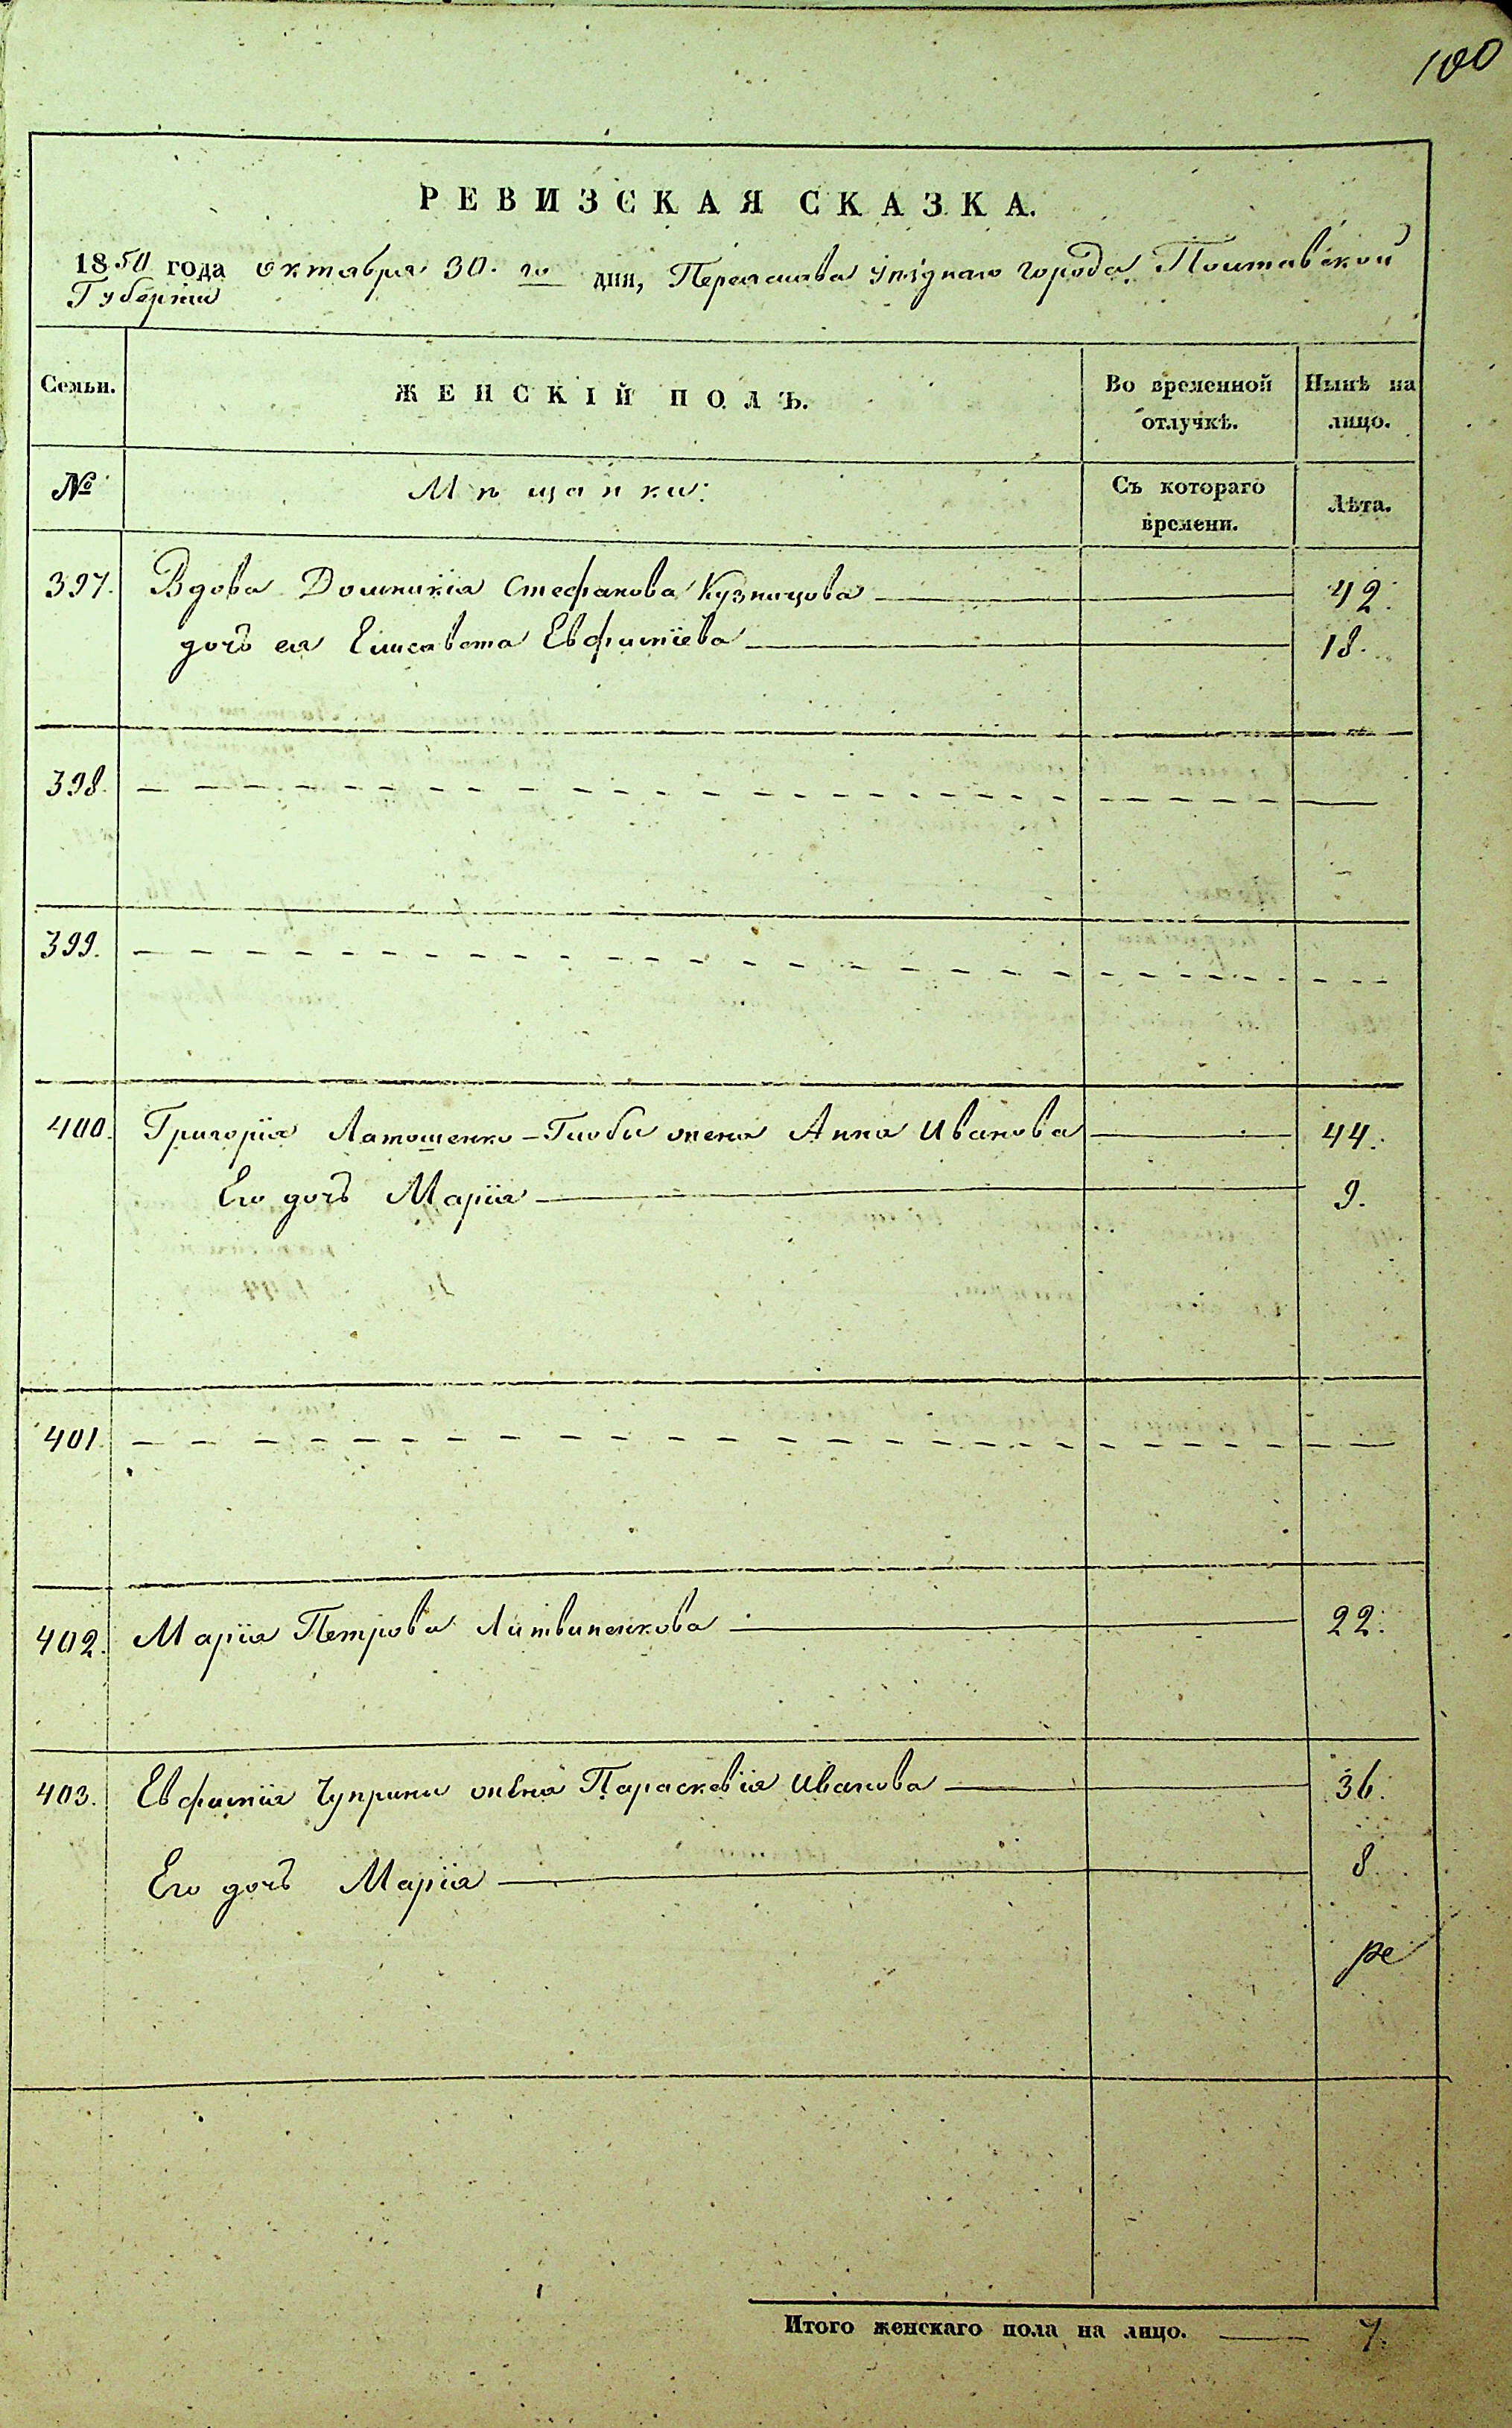 100
РЕВИЗСКАЯ СКАЗКА.
1850 года октября 30. го дня, Переяслава уѣзднаго города, Полтавской
Губерніи
Семьи. ЖЕНСКІЙ ПОЛЪ. Во временной отлучкѣ. Нынѣ на лицо.
№ Мѣщанки: Съ котораго времени. Лѣта.
397. Вдова Домникія Стефанова Кузницова 42.
дочь ея Елисавета Евфиміева 18.
398.
399.
400. Григорія Латошенко-Глобы жена Анна Иванова 44.
Его дочь Марія 9.
401.
402. Марія Петрова Литвиненкова 22.
403. Евфимія Чуприны жена Параскевія Иванова 36.
Его дочь Марія 8
ре
Итого женскаго пола на лицо. 7.